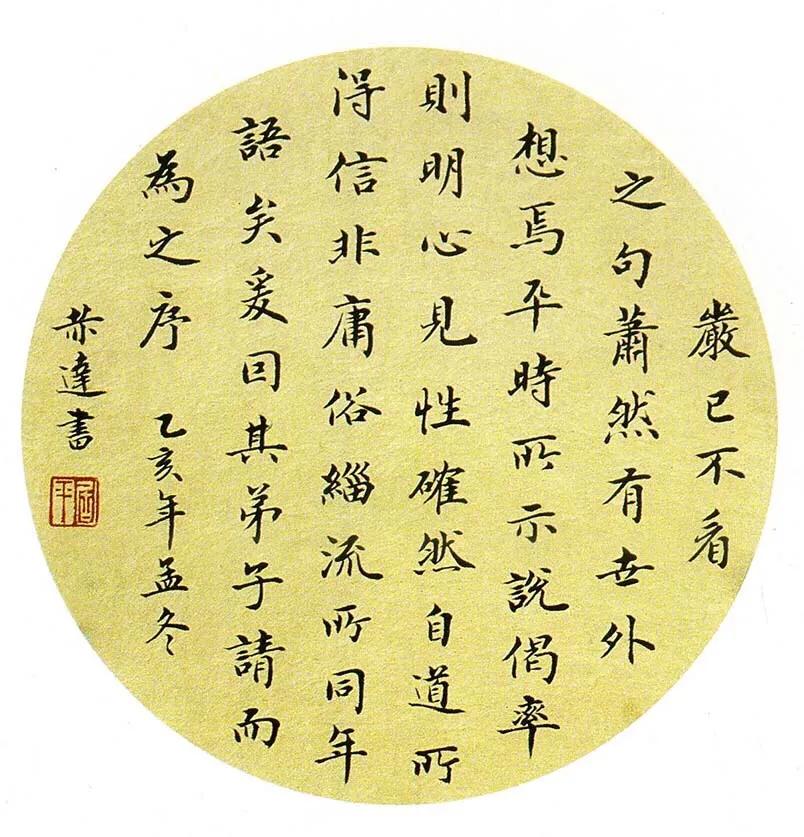 嚴已不看
之句蕭然有世外
想焉平時所示說偈率
則明心見性確然自道所
得信非庸俗緇流所同年
語矣爰因其弟子請而
為之序 乙亥年孟冬
恭達書